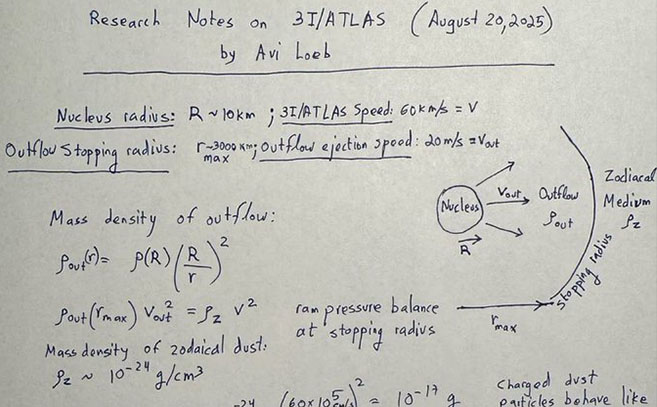 Research Notes on 3I/ATLAS (August 20, 2025)
by Avi Loeb
Nucleus radius: R ~ 10km ; 3I/ATLAS Speed: 60km/s = V
Outflow Stopping radius: r_max ~3000 km; Outflow ejection speed: 20m/s = V_out
Nucleus
R
V_out
Outflow
ρ_out
Zodiacal
Medium
ρ_z
stopping radius
r_max
Mass density of outflow:
ρ_out(r) = ρ(R) (R/r)^2
ρ_out(r_max) V_out^2 = ρ_z V^2
ram pressure balance
at stopping radius
Mass density of zodaical dust:
ρ_z ~ 10^-24 g/cm^3
-24 (60x10^5 cm/s)^2 = 10^-17 g
charged dust
particles behave like